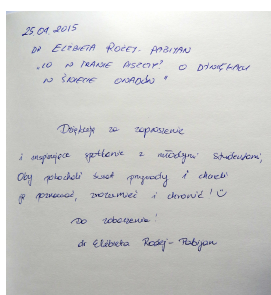 25.01.2015
DR ELŻBIETA ROŻEJ-PABIJAN
"CO W TRAWIE PISZCZY" O DŹWIĘKACH
W ŚWIECIE OWADÓW"
Dziękuję za zaproszenie
i inspirujące spotkanie z młodymi studentami,
Oby pokochali świat przyrody i chcieli
ją poznawać, rozumieć i chronić! ☺
Do zobaczenia!
dr Elżbieta Rożej-Pabijan